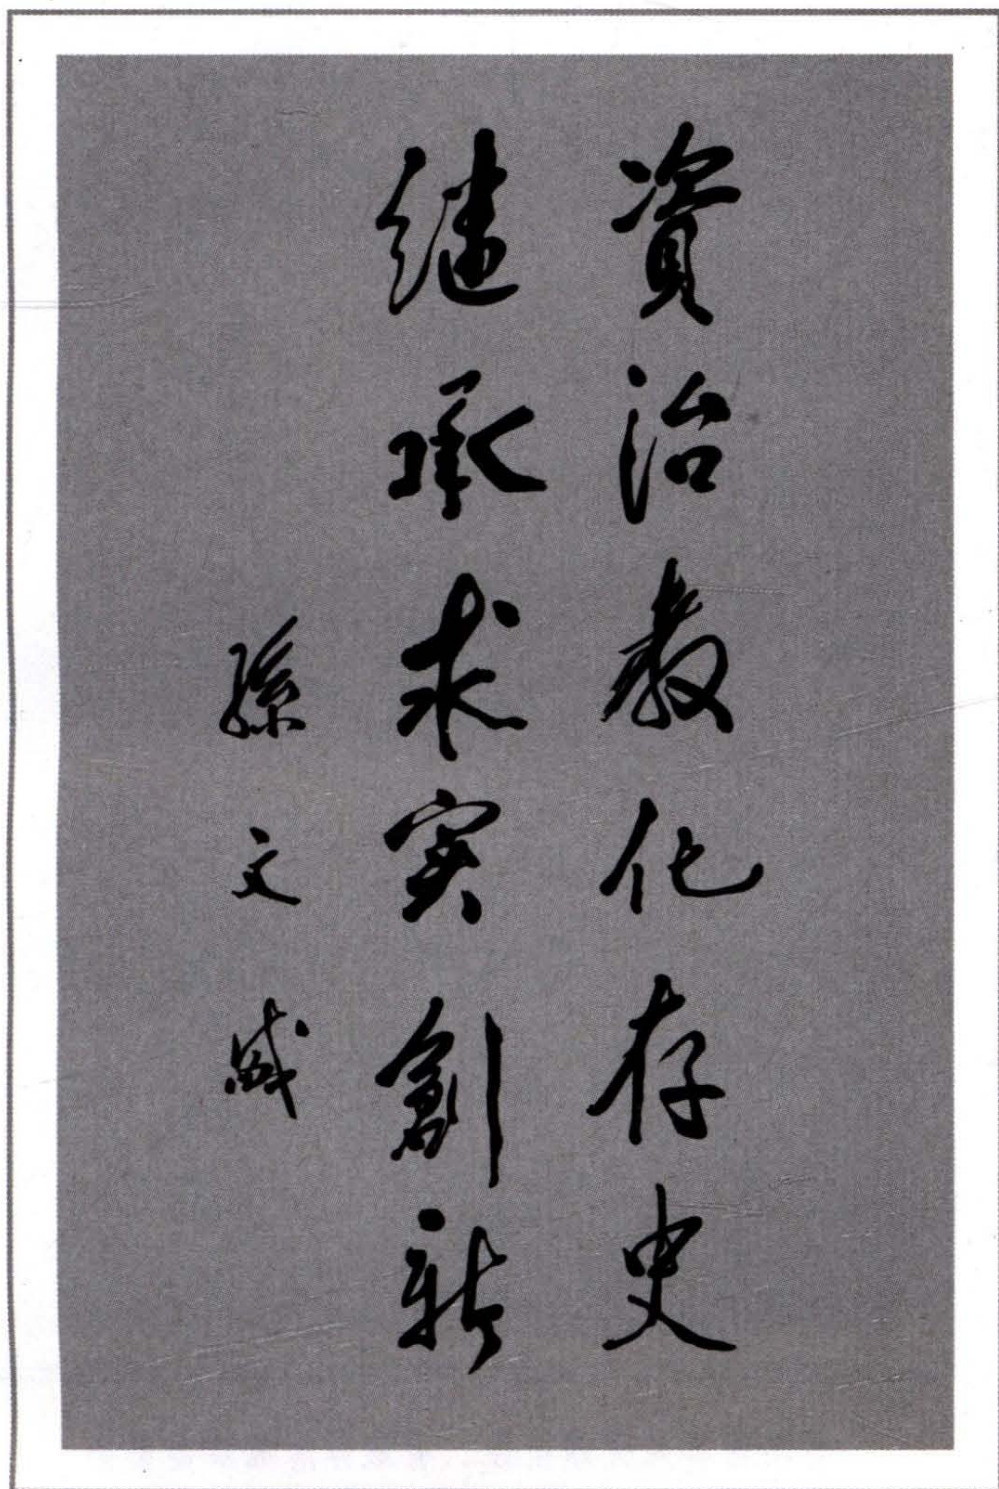 資治教化存史
继承求实創新
孫文盛